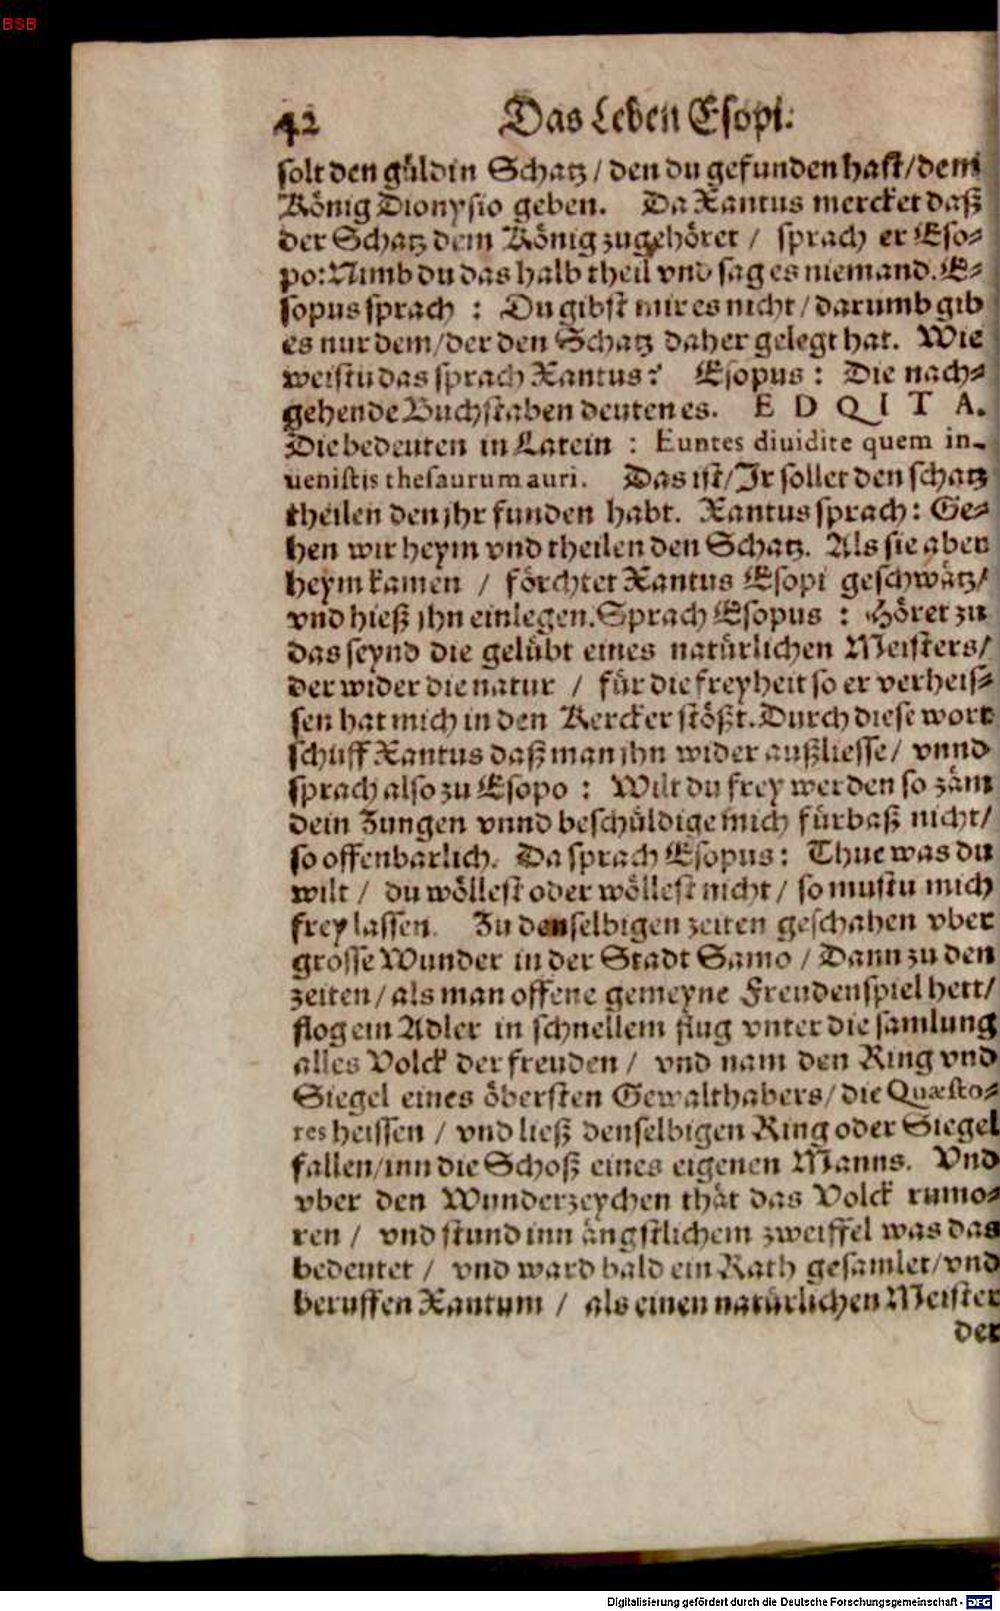 BSB
42 Das Leben Esopi.
solt den güldin Schatz / den du gefunden hast / dem
König Dionysio geben. Da Xantus mercket daß
der Schatz dem König zugehöret / sprach er Eso-
po: Nimb du das halb theil vnd sag es niemand. E-
sopus sprach : Du gibst mir es nicht / darumb gib
es nur dem / der den Schatz daher gelegt hat. Wie
weistu das sprach Xantus? Esopus : Die nach-
gehende Buchstaben deuten es. E D Q I T A.
Die bedeuten in Latein : Euntes diuidite quem in-
uenistis thesaurum auri. Das ist / Jr sollet den schatz
theilen den jhr funden habt. Xantus sprach : Ge-
hen wir heym vnd theilen den Schatz. Als sie aber
heym kamen / förchtet Xantus Esopi geschwätz /
vnd hieß jhn einlegen. Sprach Esopus : Höret zu
das seynd die gelübt eines natürlichen Meisters /
der wider die natur / für die freyheit so er verheis-
sen hat mich in den Kercker stößt. Durch diese wort
schuff Xantus daß man jhn wider außliesse / vnnd
sprach also zu Esopo : Wilt du frey werden so zäm
dein Zungen vnnd beschüldige mich fürbaß nicht /
so offenbarlich. Da sprach Esopus : Thue was du
wilt / du wöllest oder wöllest nicht / so mustu mich
frey lassen. Zu denselbigen zeiten geschahen vber
grosse Wunder in der Stadt Samo / Dann zu den
zeiten / als man offene gemeyne Freudenspiel hett /
flog ein Adler in schnellem flug vnter die samlung
alles Volck der freuden / vnd nam den Ring vnd
Siegel eines öbersten Gewalthabers / die Quæsto-
res heissen / vnd ließ denselbigen Ring oder Siegel
fallen / inn die Schoß eines eigenen Manns. Vnd
vber den Wunderzeychen thät das Volck rumo-
ren / vnd stund inn ängstlichem zweiffel was das
bedeutet / vnd ward bald ein Rath gesamlet / vnd
beruffen Xantum / als einen natürlichen Meister
der
Digitalisierung gefördert durch die Deutsche Forschungsgemeinschaft - DFG